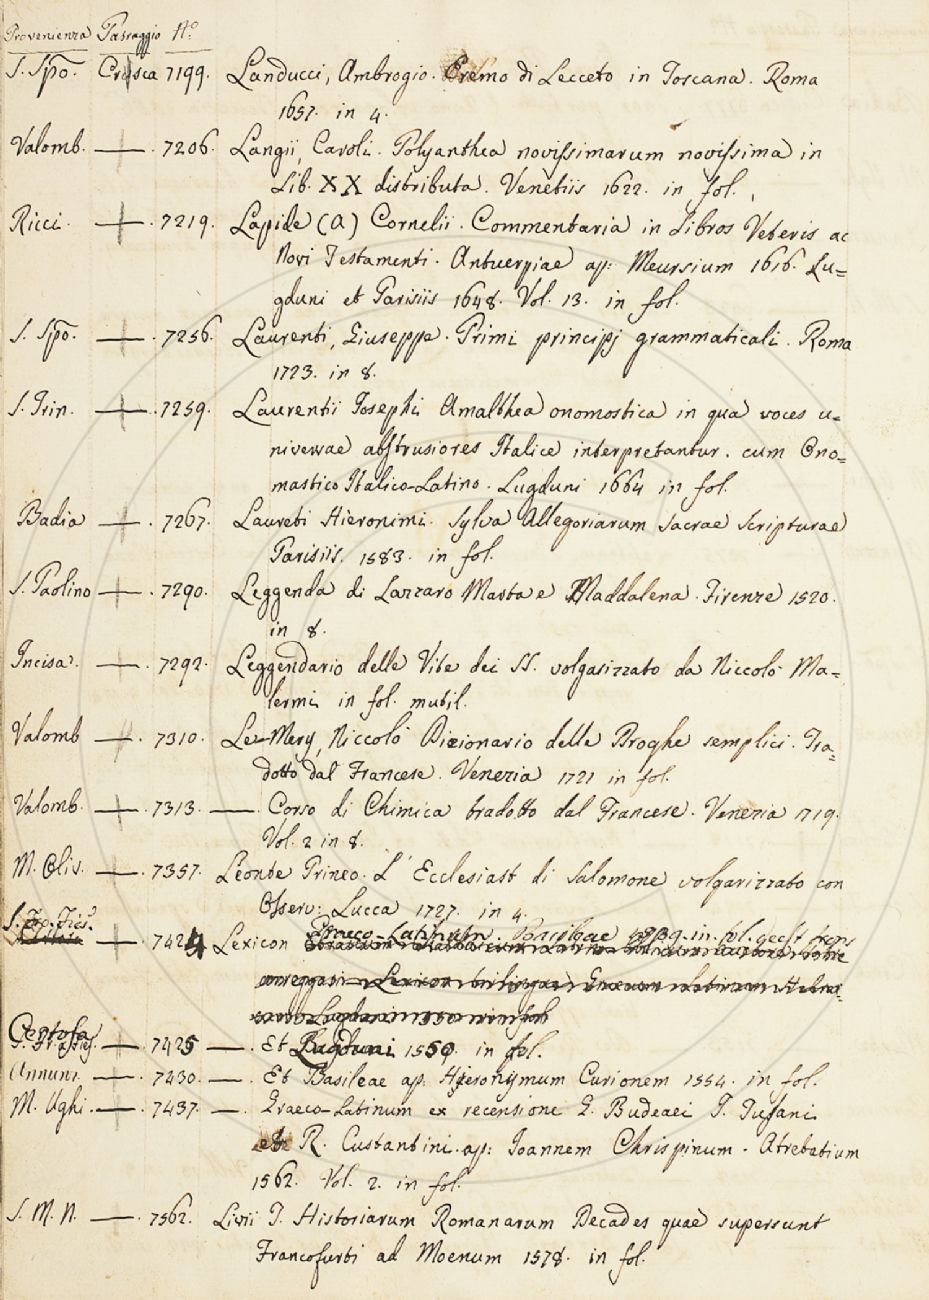 Provenienza Passaggio Nº
S. Spo. Crusca 7199. Landucci, Ambrogio. Eremo di Lecceto in Toscana. Roma
1657. in 4.
Valomb. — . 7206. Langii, Caroli. Polyanthea novissimarum novissima in
Lib. XX distributa. Venetiis 1622. in fol.
Ricci. — . 7219. Lapide (a) Cornelii. Commentaria in Libros Veteris ac
Novi Testamenti. Antuerpiae ap: Meursium 1616. Lu=
gduni et Parisiis 1648. Vol. 13. in fol.
S. Spo. — . 7256. Laurenti, Giuseppe. Primi principj grammaticali. Roma
1723. in 8.
S. Trin. — . 7259. Laurentii Josephi Amalthea onomostica in qua voces u=
niversae abstrusiores Italice interpretantur. cum Ono=
mastico Italico-Latino. Lugduni 1664 in fol.
Badia — . 7267. Laureti Hieronimi. Sylva Allegoriarum Sacrae Scripturae
Parisiis. 1583. in fol.
S. Paolino — . 7290. Leggenda di Lazzaro Marta e Maddalena. Firenze 1520.
in 8.
Incisa. — . 7292. Leggendario delle Vite dei SS. volgarizzato da Niccolò Ma=
lermi in fol. mutil.
Valomb — . 7310. Le-Mery, Niccolò Dizionario delle Droghe semplici. Tra=
dotto dal Francese. Venezia 1721 in fol.
Valomb. — . 7313. — . Corso di Chimica tradotto dal Francese. Venezia 1719.
Vol. 2 in 8.
M. Oliv. — . 7357. Leonte Prineo. L' Ecclesiast di Salomone volgarizzato con
Osserv: Lucca 1727. in 4.
— . 7424 Lexicon Graeco-Latinum. Basileae in. fol.
Certosa — . 7425 — . Et Lugduni 1550. in fol.
Annunz. — . 7430. — . Et Basileae ap. Hieronymum Curionem 1554. in fol.
M. Ughi. — . 7437. — . Graeco-Latinum ex recensione G. Budeaei T. Tusani
R. Custantini. ap: Joannem Chrispinum. Atrebatium
1562. Vol. 2. in fol.
S. M. N. — . 7562. Livii T. Historiarum Romanarum Decades quae supersunt
Francofurti ad Moenum 1578. in fol.